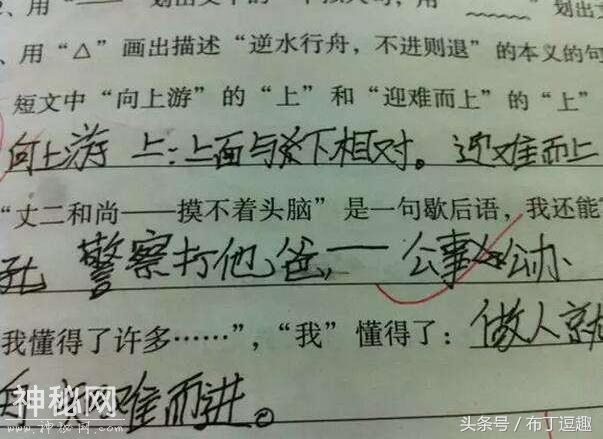 用“——” 划出文中的 用“ ” 划出文
、用“△”画出描述“逆水行舟，不进则退”的本义的句
短文中“向上游”的“上”和“迎难而上”的“上”
向上游 上：上面与下相对。迎难而上
“丈二和尚——摸不着头脑”是一句歇后语，我还能
警察打他爸，——公事公办
我懂得了许多……”，“我”懂得了：做人就
难而进。
神秘网
www.shenmiwang.com
头条号／布丁逗趣